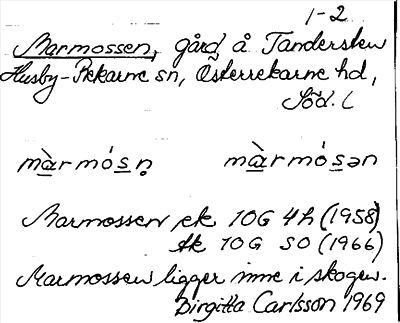 1-2
Marmossen, gård å Tanderstew
Husby-Rekarne sn, Österrekarne hd,
Söd. L
màr mósn̥ màr mósən
Marmossen ek 10G 4h (1958)
tk 10G SO (1966)
Marmossen ligger inne i skogen.
Birgitta Carlsson 1969